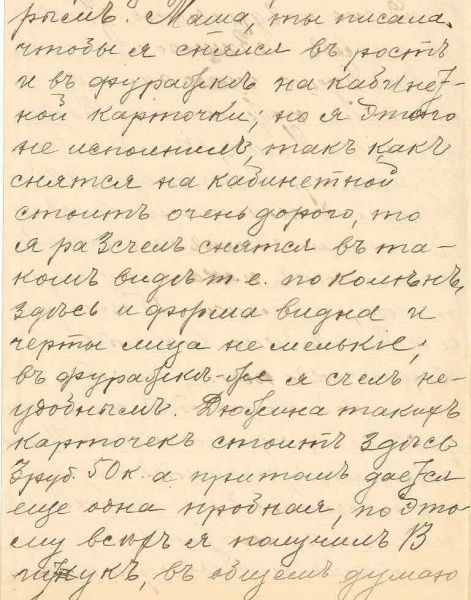 рымъ. Мама, ты писала,
чтобы я снялся въ ростъ
и въ фуражкѣ на кабинет-
ной карточки; но я этого
не исполнилъ, такъ какъ
снятся на кабинетной
стоитъ очень дорого, то
я разсчелъ снятся въ та-
комъ видѣ т.е. по колѣнъ,
здѣсь и форма видна и
черты лица не мелькіе;
въ фуражкѣ я счелъ не-
удобнымъ. Дюжина такихъ
карточекъ стоитъ здѣсь
3 руб. 50 к. а притомъ дается
еще одна пробная, поэто-
му всѣхъ я получилъ 13
штукъ, въ общемъ думаю